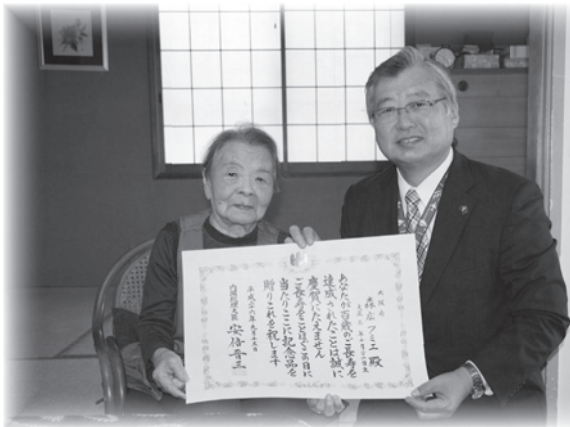 大阪府
森広フミエ殿
あなたが百歳のご長寿を
達成されたことは誠に
慶賀にたえません
ご長寿をことほぐこの日に
当たりここに記念品を
贈りこれを祝します
平成二十六年九月十五日
内閣総理大臣 安倍晋三